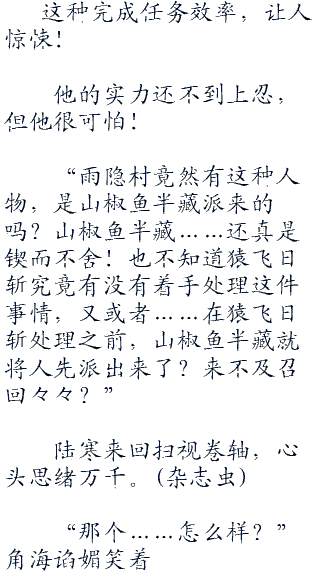 这种完成任务效率，让人
惊悚！
他的实力还不到上忍，
但他很可怕！
“雨隐村竟然有这种人
物，是山椒鱼半藏派来的
吗？山椒鱼半藏……还真是
锲而不舍！也不知道猿飞日
斩究竟有没有着手处理这件
事情，又或者……在猿飞日
斩处理之前，山椒鱼半藏就
将人先派出来了？来不及召
回々々？”
陆寒来回扫视卷轴，心
头思绪万千。(杂志虫)
“那个……怎么样？”
角海谄媚笑着